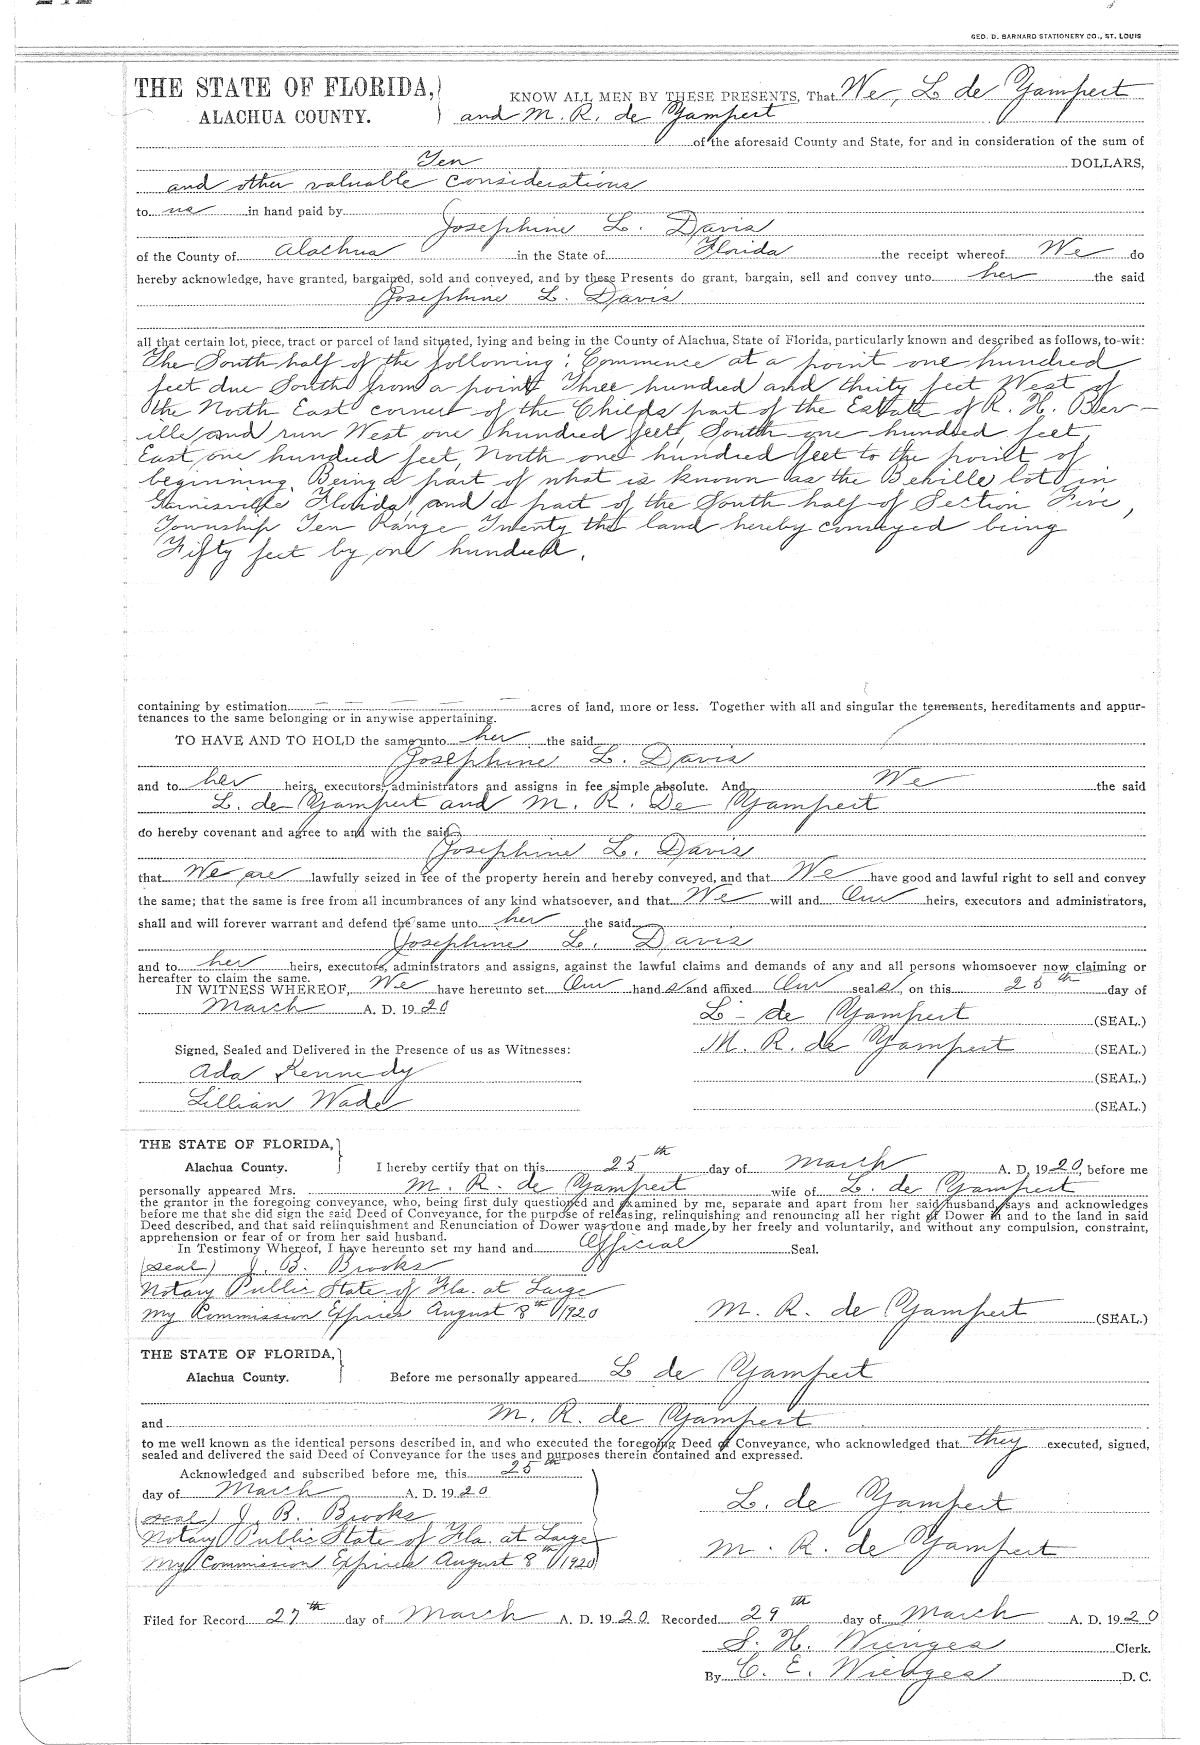 GEO. D. BARNARD STATIONERY CO., ST. LOUIS
THE STATE OF FLORIDA,
ALACHUA COUNTY.
KNOW ALL MEN BY THESE PRESENTS, That We, L de Yampert
and M. R. de Yampert
of the aforesaid County and State, for and in consideration of the sum of
Ten DOLLARS,
and other valuable considerations
to us in hand paid by
Josephine L. Davis
of the County of Alachua in the State of Florida the receipt whereof We do
hereby acknowledge, have granted, bargained, sold and conveyed, and by these Presents do grant, bargain, sell and convey unto her the said
Josephine L. Davis
all that certain lot, piece, tract or parcel of land situated, lying and being in the County of Alachua, State of Florida, particularly known and described as follows, to-wit:
The South half of the following: Commence at a point one hundred
feet due South from a point Three hundred and thirty feet West of
the North East corner of the Childs part of the Estate of R. H. Bev-
ille and run West one hundred feet, South one hundred feet,
East one hundred feet, North one hundred feet to the point of
beginning. Being a part of what is known as the Beville lot in
Gainesville Florida, and a part of the South half of Section Five,
Township Ten Range Twenty the land hereby conveyed being
Fifty feet by one hundred.
containing by estimation — — — — — acres of land, more or less. Together with all and singular the tenements, hereditaments and appur-
tenances to the same belonging or in anywise appertaining.
TO HAVE AND TO HOLD the same unto her the said
Josephine L. Davis
and to her heirs, executors, administrators and assigns in fee simple absolute. And We the said
L. de Yampert and M. R. De Yampert
do hereby covenant and agree to and with the said
Josephine L. Davis
that We are lawfully seized in fee of the property herein and hereby conveyed, and that We have good and lawful right to sell and convey
the same; that the same is free from all incumbrances of any kind whatsoever, and that We will and Our heirs, executors and administrators,
shall and will forever warrant and defend the same unto her the said
Josephine L. Davis
and to her heirs, executors, administrators and assigns, against the lawful claims and demands of any and all persons whomsoever now claiming or
hereafter to claim the same.
IN WITNESS WHEREOF, We have hereunto set Our hands and affixed Our seals, on this 25th day of
March A. D. 1920
L - de Yampert (SEAL.)
M. R. de Yampert (SEAL.)
Signed, Sealed and Delivered in the Presence of us as Witnesses:
Ada Kennedy (SEAL.)
Lillian Wade (SEAL.)
THE STATE OF FLORIDA,
Alachua County.
I hereby certify that on this 25th day of March A. D. 1920, before me
personally appeared Mrs. M. R. de Yampert wife of L. de Yampert
the grantor in the foregoing conveyance, who, being first duly questioned and examined by me, separate and apart from her said husband, says and acknowledges
before me that she did sign the said Deed of Conveyance, for the purpose of releasing, relinquishing and renouncing all her right of Dower in and to the land in said
Deed described, and that said relinquishment and Renunciation of Dower was done and made by her freely and voluntarily, and without any compulsion, constraint,
apprehension or fear of or from her said husband.
In Testimony Whereof, I have hereunto set my hand and Official Seal.
(seal) J. B. Brooks
Notary Public State of Fla. at Large
My Commission Expires August 8th 1920
M. R. de Yampert (SEAL.)
THE STATE OF FLORIDA,
Alachua County.
Before me personally appeared L de Yampert
and M. R. de Yampert
to me well known as the identical persons described in, and who executed the foregoing Deed of Conveyance, who acknowledged that they executed, signed,
sealed and delivered the said Deed of Conveyance for the uses and purposes therein contained and expressed.
Acknowledged and subscribed before me, this 25th
day of March A. D. 1920
(seal) J. B. Brooks
Notary Public State of Fla. at Large
My Commission Expires August 8th 1920
L. de Yampert
M. R. de Yampert
Filed for Record 27th day of March A. D. 1920 Recorded 29th day of March A. D. 1920
S. H. Wienges Clerk.
By C. E. Wienges D. C.